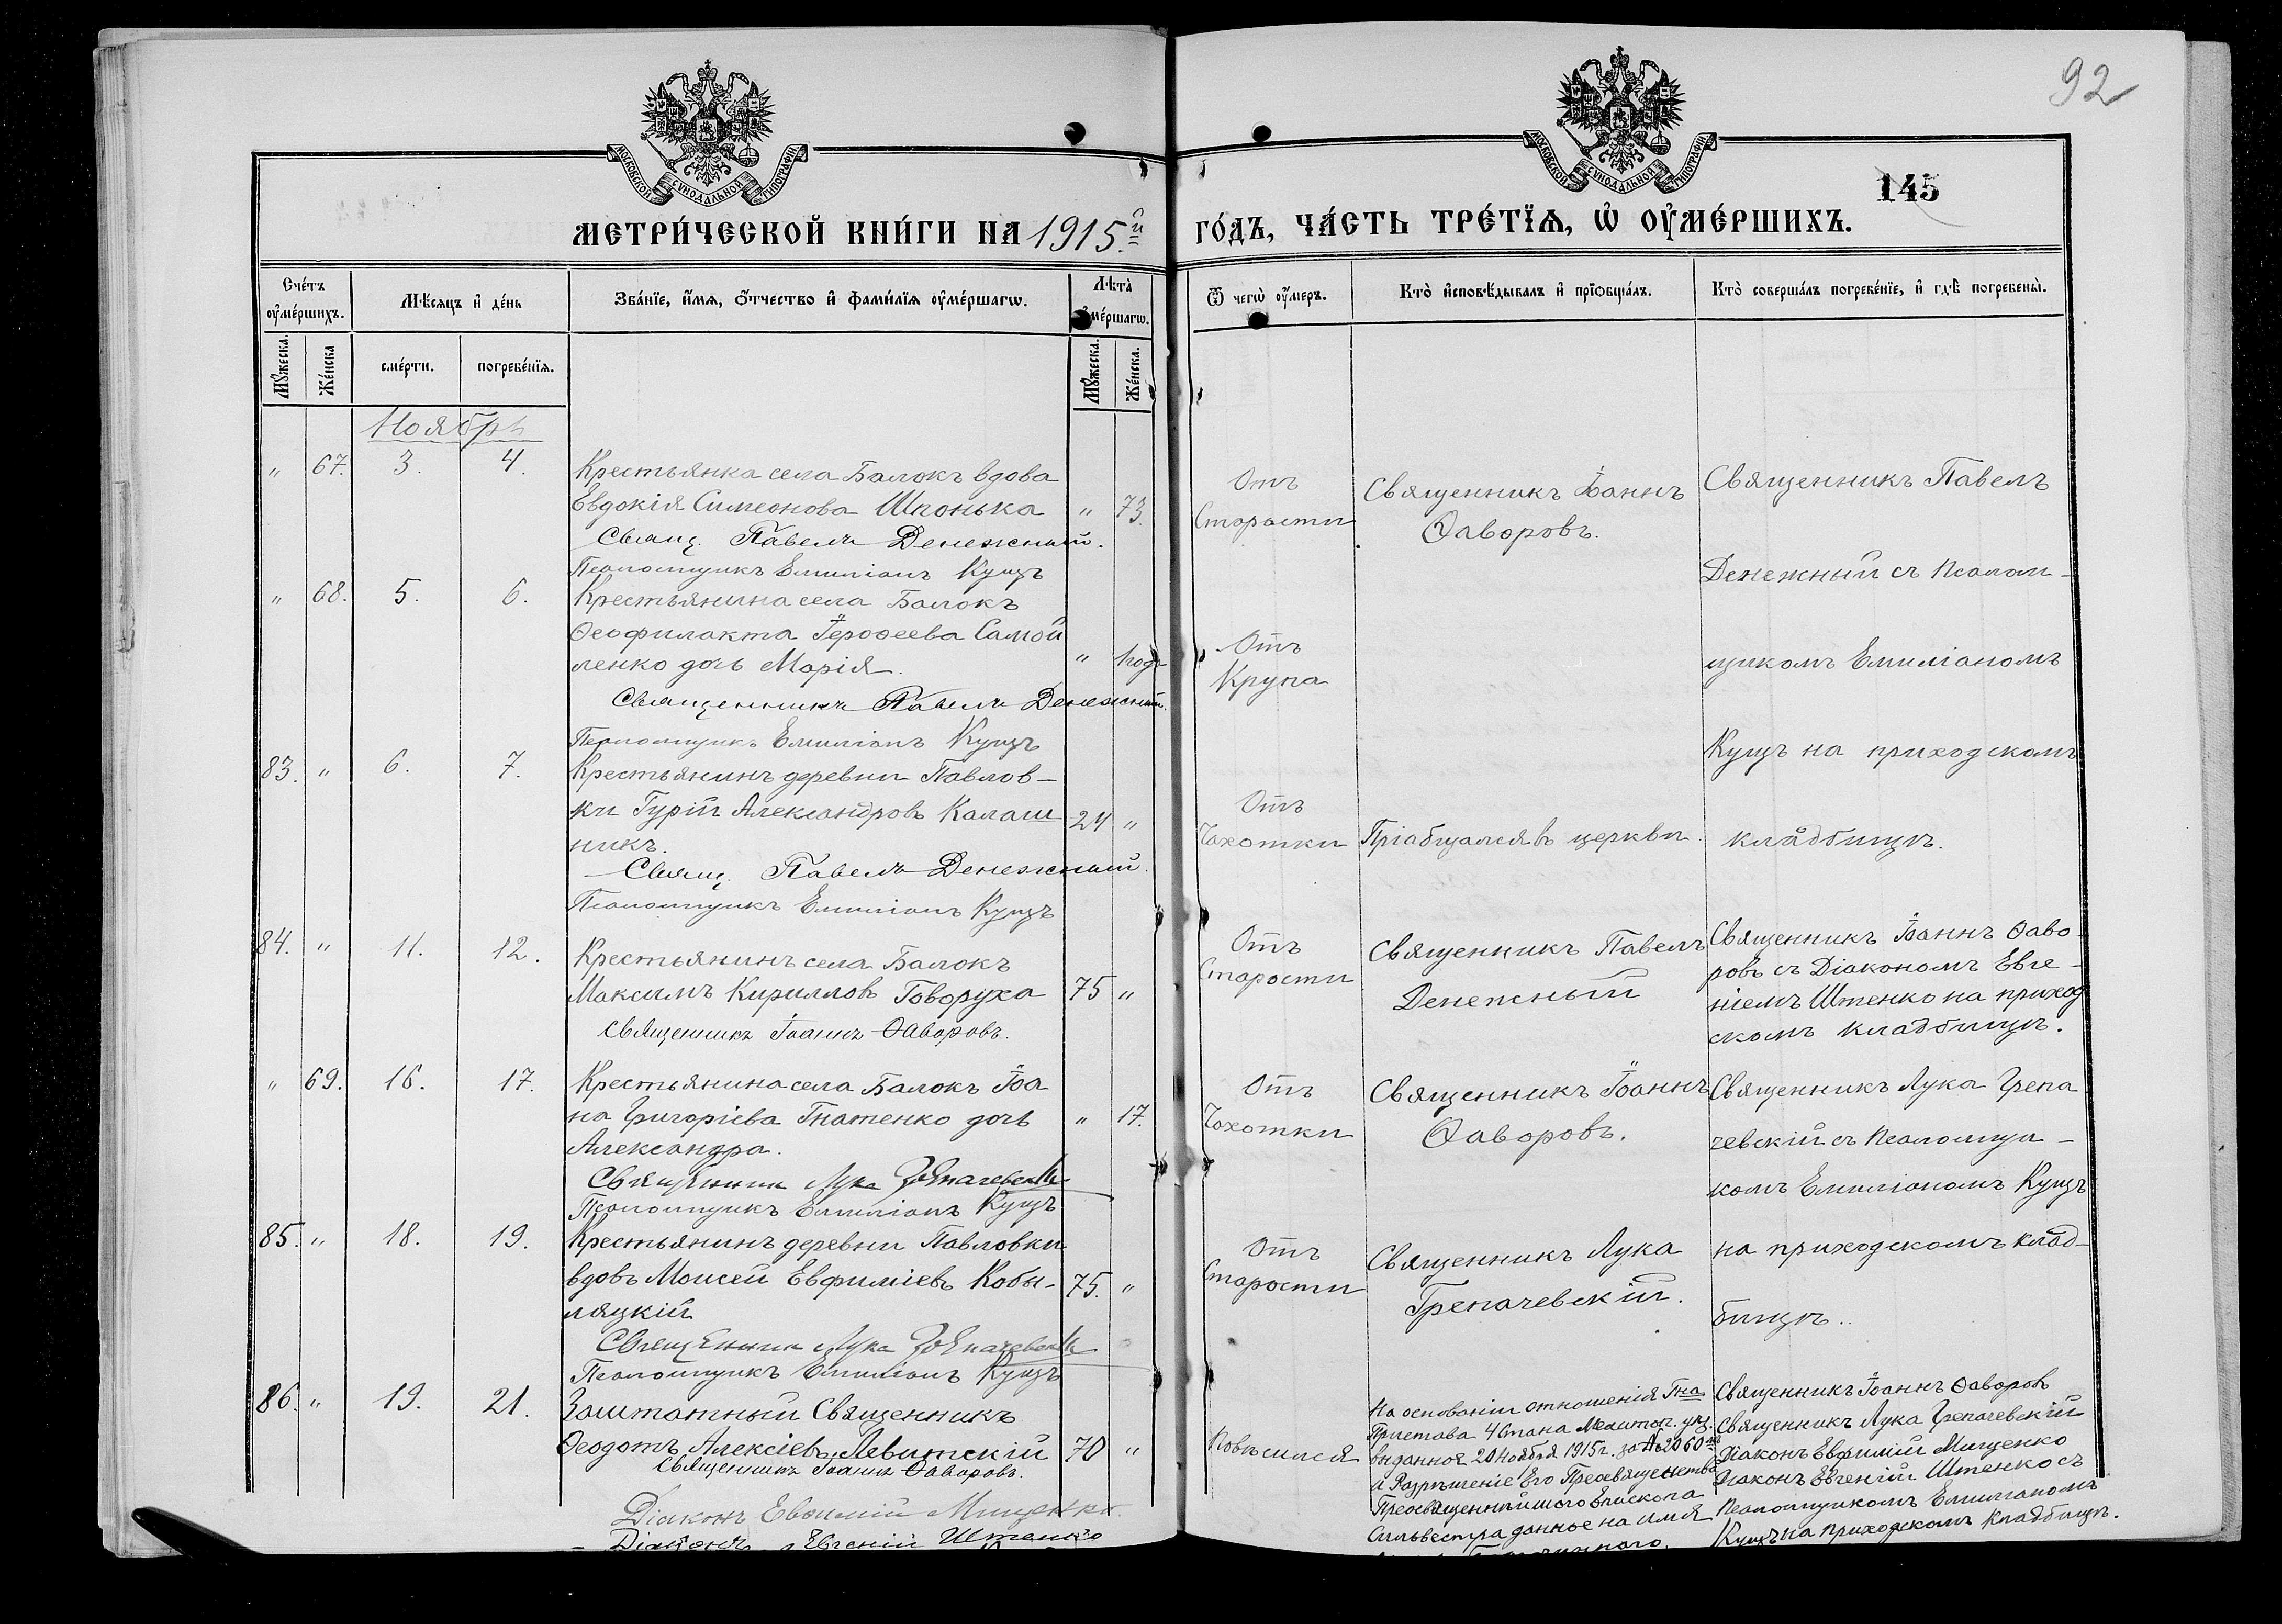 92
МОСКОВСКОЙ СѴНОДАЛЬНОЙ ТИПОГРАФІИ
МОСКОВСКОЙ СѴНОДАЛЬНОЙ ТИПОГРАФІИ
145
МЕТРИ́ЧЕСКОЙ КНИ́ГИ НА 1915й
ГО́ДЪ, ЧА́СТЬ ТРЕ́ТЇѦ, Ѡ҆ ОУ҆МЕ́РШИХЪ.
Сче́тъ оу҆ме́ршихъ.
Мѣ́сяцъ и҆ де́нь
Зва́нїе, и҆́мѧ, ѻ҆́тчество и҆ фами́лїѧ оу҆ме́ршагѡ.
Лѣта̀ оу҆ме́ршагѡ.
Ѿ чегѡ̀ оу҆́меръ.
Кто̀ и҆сповѣ́дывалъ и҆ прїѡбща́лъ.
Кто̀ соверша́лъ погребе́нїе, и҆ гдѣ̀ погребены̀.
Мꙋ́жеска.
Же́нска
сме́рти.
погребе́нїѧ.
Мꙋ́жеска.
Же́нска.
Ноябрь
" 67. 3. 4.
Крестьянка села Балокъ вдова
Евдокія Симеонова Шпонька " 73.
Свящ. Павелъ Денежный.
Псаломщикъ Емиліанъ Кущъ
Отъ
Старости
Священникъ Іоаннъ
Ѳаворовъ.
Священникъ Павелъ
Денежный съ псалом-
щикомъ Емиліаномъ
Кущъ на приходскомъ
кладбищѣ.
" 68. 5. 6.
Крестьянина села Балокъ
Ѳеофилакта Іероѳеева Самой
ленко дочь Марія. " 1 годъ
Священникъ Павелъ Денежный.
Псаломщикъ Емиліанъ Кущъ
Отъ
Крупа
83. " 6. 7.
Крестьянинъ деревни Павлов-
ки Гурій Александровъ Калаш
никъ. 24 "
Свящ. Павелъ Денежный.
Псаломщикъ Емиліанъ Кущъ
Отъ
Чахотки
Пріобщался въ церкви.
84. " 11. 12.
Крестьянинъ села Балокъ
Максимъ Кирилловъ Говоруха 75 "
Священникъ Іоаннъ Ѳаворовъ.
Отъ
Старости
Священникъ Павелъ
Денежный
Священникъ Іоаннъ Ѳаво-
ровъ съ Діакономъ Евге-
ніемъ Штенко на приход
скомъ кладбищѣ.
" 69. 16. 17.
Крестьянина села Балокъ Іоа
на Григоріева Гнатенко дочь " 17.
Александра.
Священникъ Лука Грепачевскій
Псаломщикъ Емиліанъ Кущъ
Отъ
Чахотки
Священникъ Іоаннъ
Ѳаворовъ.
Священникъ Лука Грепа
чевскій съ псаломщи-
комъ Емиліаномъ Кущъ
на приходскомъ клад-
бищѣ.
85. " 18. 19.
Крестьянинъ деревни Павловки
вдовъ Моисей Евфиміевъ Кобы- 75. "
ляцкій
Священникъ Лука Грепачевскій
Псаломщикъ Емиліанъ Кущъ
Отъ
Старости
Священникъ Лука
Грепачевскій.
86. " 19. 21.
Заштатный Священникъ
Ѳеодотъ Алексіевъ Левитскій 70 "
Священникъ Іоаннъ Ѳаворовъ.
Діаконъ Евѳимій Мищенко.
Діаконъ Евгеній Штенко
Повѣсился
На основаніи отношенія Гна
Пристава 4 Стана Мелитоп. уѣз.
выданное 20 Ноября 1915 г. за № 2060
и Разрѣшеніе Его Преосвященства
Преосвященнѣйшаго Епископа
Сильвестра данное на имя
Священникъ Іоаннъ Ѳаворовъ
Священникъ Лука Грепачевскій
Діаконъ Евфимій Мищенко
Діаконъ Евгеній Штенко съ
псаломщикомъ Емиліаномъ
Кущъ на приходскомъ кладбищѣ.